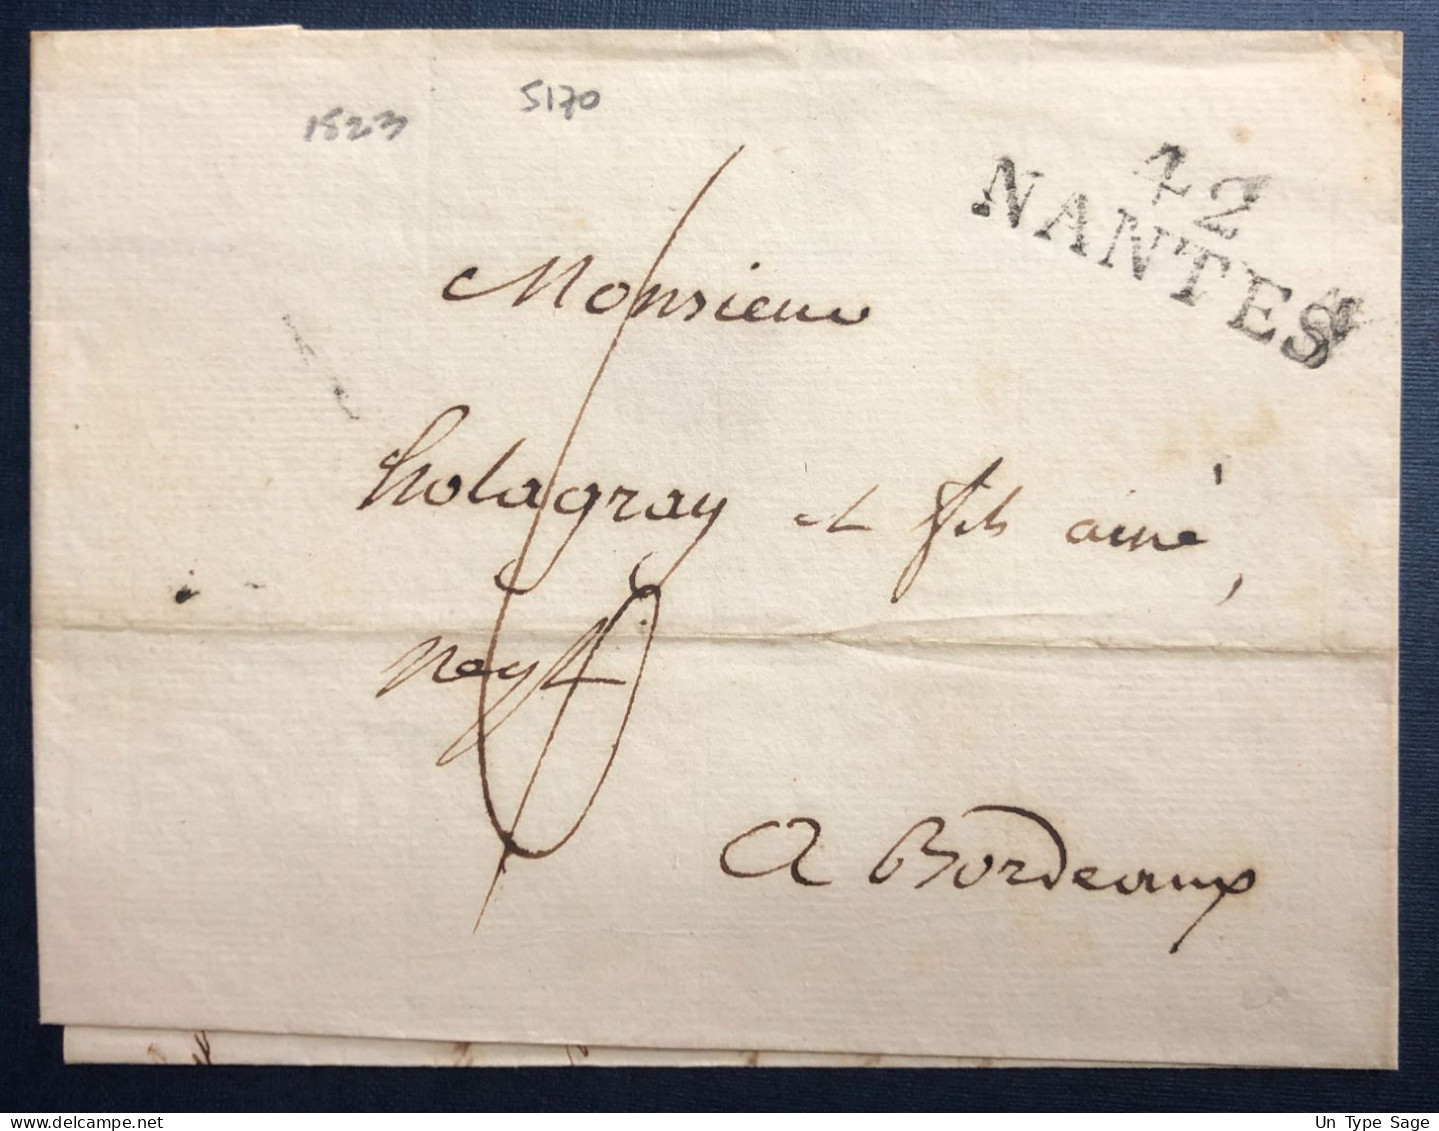 1823
5170
42
NANTES
Monsieur
holagray et fils ainé,
negt
A Bordeaux
Un Type Sage